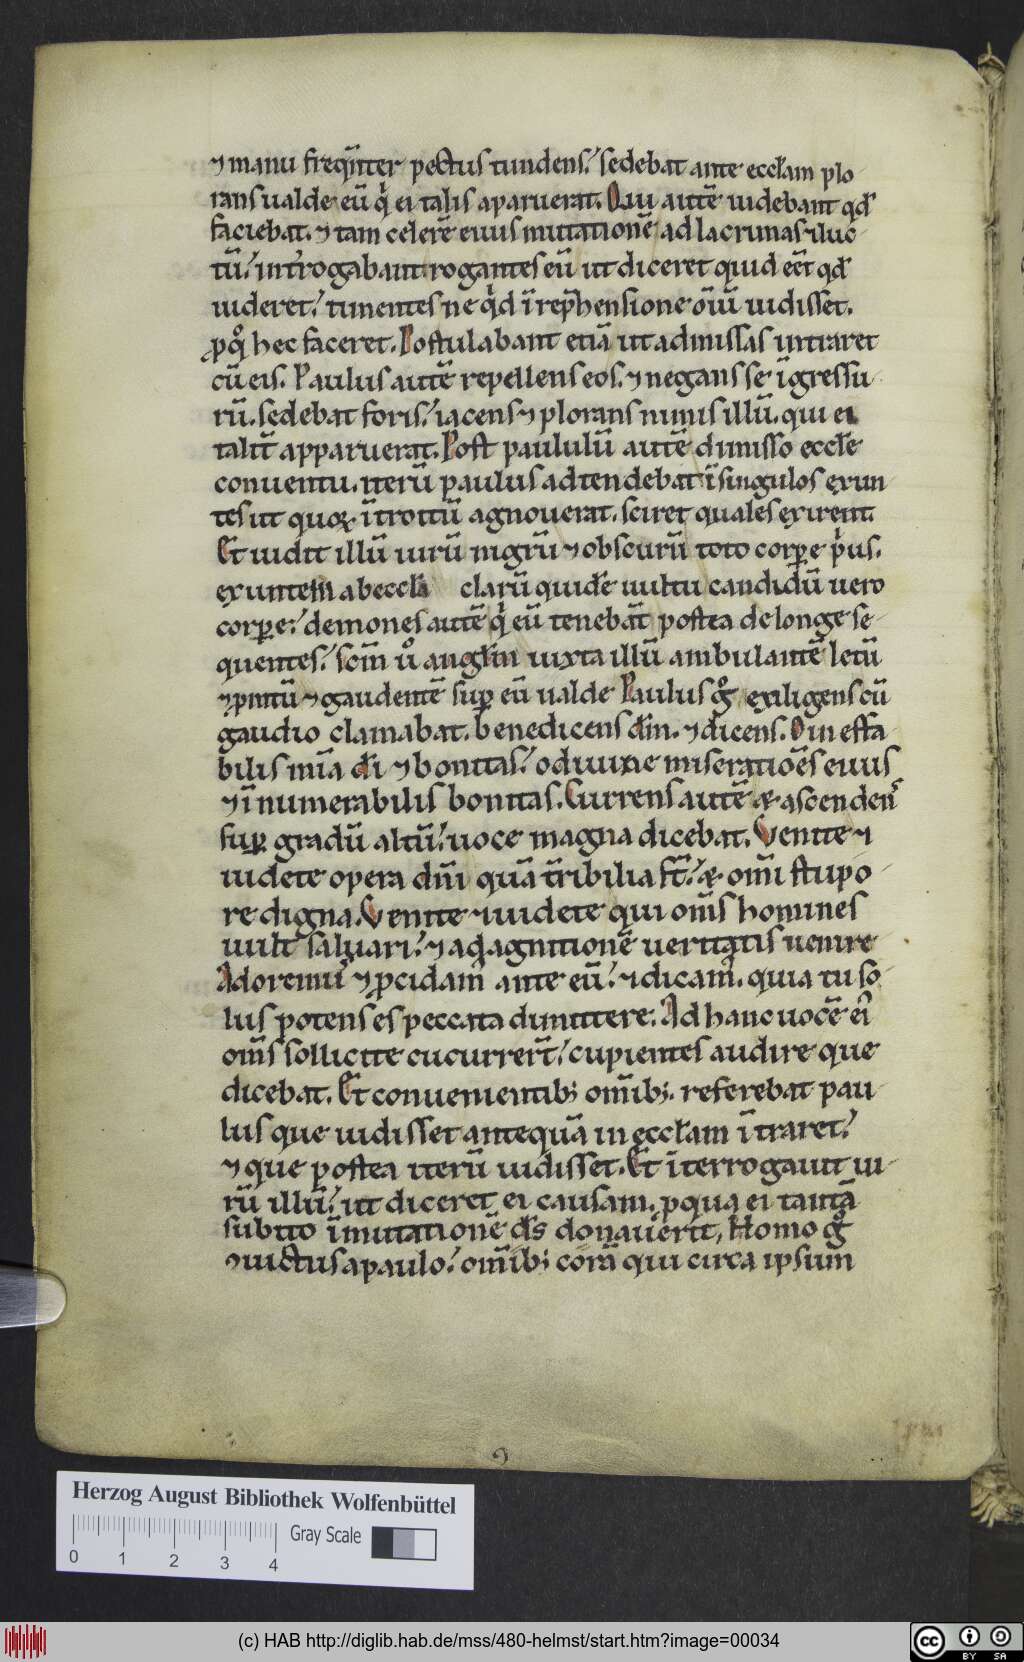 ⁊ manu freq̄nter pectus tundens. sedebat ante eccl̄am plo
rans ualde eū q̇ ei talis aparuerat. Qui autē uidebant qđ
faciebat. ⁊ tam celerē eius mutationē ad lacrimas ⁊ luc
tū. int̄rogabant rogantes eū ut diceret quid eēt qđ
uideret. timentes ne q̇d ī rep̄hensione oīū uidisset.
hec faceret. Postulabant etiā ut ad missas intraret
cū eis. Paulus autē repellens eos. ⁊ negans se īgressu
rū. sedebat foris. iacens ⁊ plorans nimis illū. qui ei
talit̄ apparuerat. Post paululū autē dimisso eccl̄e
conuentu. iterū paulus adtendebat ī singulos exeun
tes ut quoꝝ ītroitū agnouerat. sciret quales exirent.
Et uidit illū uirū nigrū ⁊ obscurū toto corꝑe ṗus.
exuntem ab eccl̄a clarū quidē uultu candidū uero
corꝑe. demones autē q̇ eū tenebāt postea de longe se
quentes. sc̄m u̇ angl̄m iuxta illū ambulantē letū
⁊ ꝓmtū ⁊ gaudentē suꝑ eū ualde Paulus gͦ exiligens cū
gaudio clamabat. benedicens dm̄. ⁊ dicens. O in effa
bilis mīa dī ⁊ bonitas. o diuine miseratiōes eius
⁊ īnumerabilis bonitas. Currens autē & ascendens
suꝑ gradū altū. uoce magna dicebat. Venite ⁊
uidete opera dn̄i quā t̄ribilia st̄. & om̄i stupo
re digna. Venite ⁊ uidete qui om̄s homines
uult saluari. ⁊ ad agnitionē ueritatis uenire
Adoremus ⁊ ꝓcidam ante eū. ⁊ dicam. quia tu so
lus potens es peccata dimittere. Ad hanc uocē ei
om̄s sollicite cucurrert̄. cupientes audire que
dicebat. Et conuenientibꝫ om̄ibꝫ. referebat pau
lus que uidisset antequā in eccl̄am ītraret.
⁊ que postea iterū uidisset. Et īterrogauit ui
rū illū. ut diceret ei causam. ꝓ qua ei tantā
subito īmutationē ds̄ donauerit. Homo gͦ
⁊ uictus a paulo. om̄ibꝫ corā qui circa ipsum
Herzog August Bibliothek Wolfenbüttel
Gray Scale
0 1 2 3 4
(c) HAB http://diglib.hab.de/mss/480-helmst/start.htm?image=00034
cc BY SA